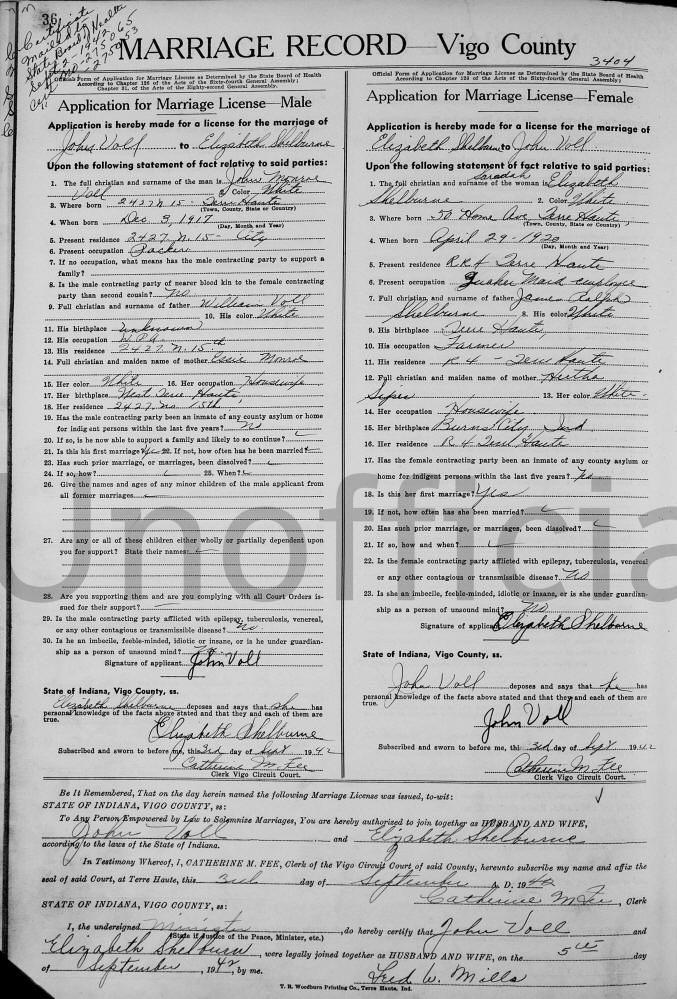 36
Certificate
Mailed to
State Board of Health
MARRIAGE RECORD—Vigo County
3404
Official Form of Application for Marriage License as Determined by the State Board of Health
According to Chapter 126 of the Acts of the Sixty-fourth General Assembly;
Chapter 21, of the Acts of the Eighty-second General Assembly.
Application for Marriage License—Male
Application is hereby made for a license for the marriage of
John Voll to Elizabeth Shelburne
Upon the following statement of fact relative to said parties:
1. The full christian and surname of the man is John Monroe
Voll 2. Color White
3. Where born 2427 N. 15 - Terre Haute
(Town, County, State or Country)
4. When born Dec 3, 1917
(Day, Month and Year)
5. Present residence 2427 N. 15 - City
6. Present occupation Packer
7. If no occupation, what means has the male contracting party to support a
family?
8. Is the male contracting party of nearer blood kin to the female contracting
party than second cousin? No
9. Full christian and surname of father William Voll
10. His color White
11. His birthplace unknown
12. His occupation W.P.A.
13. His residence 2427 N. 15th
14. Full christian and maiden name of mother Essie Monroe
15. Her color White 16. Her occupation Housewife
17. Her birthplace West Terre Haute
18. Her residence 2427 No. 15th
19. Has the male contracting party been an inmate of any county asylum or home
for indigent persons within the last five years? No
20. If so, is he now able to support a family and likely to continue?
21. Is this his first marriage? Yes 22. If not, how often has he been married?
23. Has such prior marriage, or marriages, been dissolved?
24. If so, how? 25. When?
26. Give the names and ages of any minor children of the male applicant from
all former marriages.
27. Are any or all of these children either wholly or partially dependent upon
you for support? State their names:
28. Are you supporting them and are you complying with all Court Orders is-
sued for their support?
29. Is the male contracting party afflicted with epilepsy, tuberculosis, venereal,
or any other contagious or transmissible disease? No
30. Is he an imbecile, feeble-minded, idiotic or insane, or is he under guardian-
ship as a person of unsound mind? No
Signature of applicant John Voll
State of Indiana, Vigo County, ss.
Elizabeth Shelburne deposes and says that she has
personal knowledge of the facts above stated and that they and each of them are
true.
Elizabeth Shelburne
Subscribed and sworn to before me, this 3rd day of Sept 1942
Catherine M. Fee
Clerk Vigo Circuit Court.
Official Form of Application for Marriage License as Determined by the State Board of Health
According to Chapter 126 of the Acts of the Sixty-fourth General Assembly;
Application for Marriage License—Female
Application is hereby made for a license for the marriage of
Elizabeth Shelburn to John Voll
Upon the following statement of fact relative to said parties:
1. The full christian and surname of the woman is Elizabeth
Shelburne 2. Color White
3. Where born 50 Home Ave Terre Haute
(Town, County, State or Country)
4. When born April 29 - 1920
(Day, Month and Year)
5. Present residence R R 4 Terre Haute
6. Present occupation Quaker Maid employee
7. Full christian and surname of father James Ralph
Shelburne 8. His color White
9. His birthplace Terre Haute,
10. His occupation Farmer
11. His residence R 4 - Terre Haute
12. Full christian and maiden name of mother Hertha
13. Her color White
14. Her occupation Housewife
15. Her birthplace Burns City, Ind
16. Her residence R 4 Terre Haute
17. Has the female contracting party been an inmate of any county asylum or
home for indigent persons within the last five years? No
18. Is this her first marriage? Yes
19. If not, how often has she been married?
20. Has such prior marriage, or marriages, been dissolved?
21. If so, how and when?
22. Is the female contracting party afflicted with epilepsy, tuberculosis, venereal
or any other contagious or transmissible disease? No
23. Is she an imbecile, feeble-minded, idiotic or insane, or is she under guardian-
ship as a person of unsound mind? No
Signature of applicant Elizabeth Shelburne
State of Indiana, Vigo County, ss.
John Voll deposes and says that he has
personal knowledge of the facts above stated and that they and each of them are
true.
John Voll
Subscribed and sworn to before me, this 3rd day of Sept 1942
Catherine M. Fee
Clerk Vigo Circuit Court.
Unofficial
Be It Remembered, That on the day herein named the following Marriage License was issued, to-wit:
STATE OF INDIANA, VIGO COUNTY, ss:
To Any Person Empowered by Law to Solemnize Marriages, You are hereby authorized to join together as HUSBAND AND WIFE,
John Voll and Elizabeth Shelburne
according to the laws of the State of Indiana.
In Testimony Whereof, I, CATHERINE M. FEE, Clerk of the Vigo Circuit Court of said County, hereunto subscribe my name and affix the
seal of said Court, at Terre Haute, this 3rd day of September A. D. 1942
Catherine M Fee, Clerk
STATE OF INDIANA, VIGO COUNTY, ss:
I, the undersigned Minister, do hereby certify that John Voll and
(State if Justice of the Peace, Minister, etc.)
Elizabeth Shelburn, were legally joined together as HUSBAND AND WIFE, on the 5th day
of September, 1942, by me.
Fred W. Mills
T. R. Woodburn Printing Co., Terre Haute, Ind.